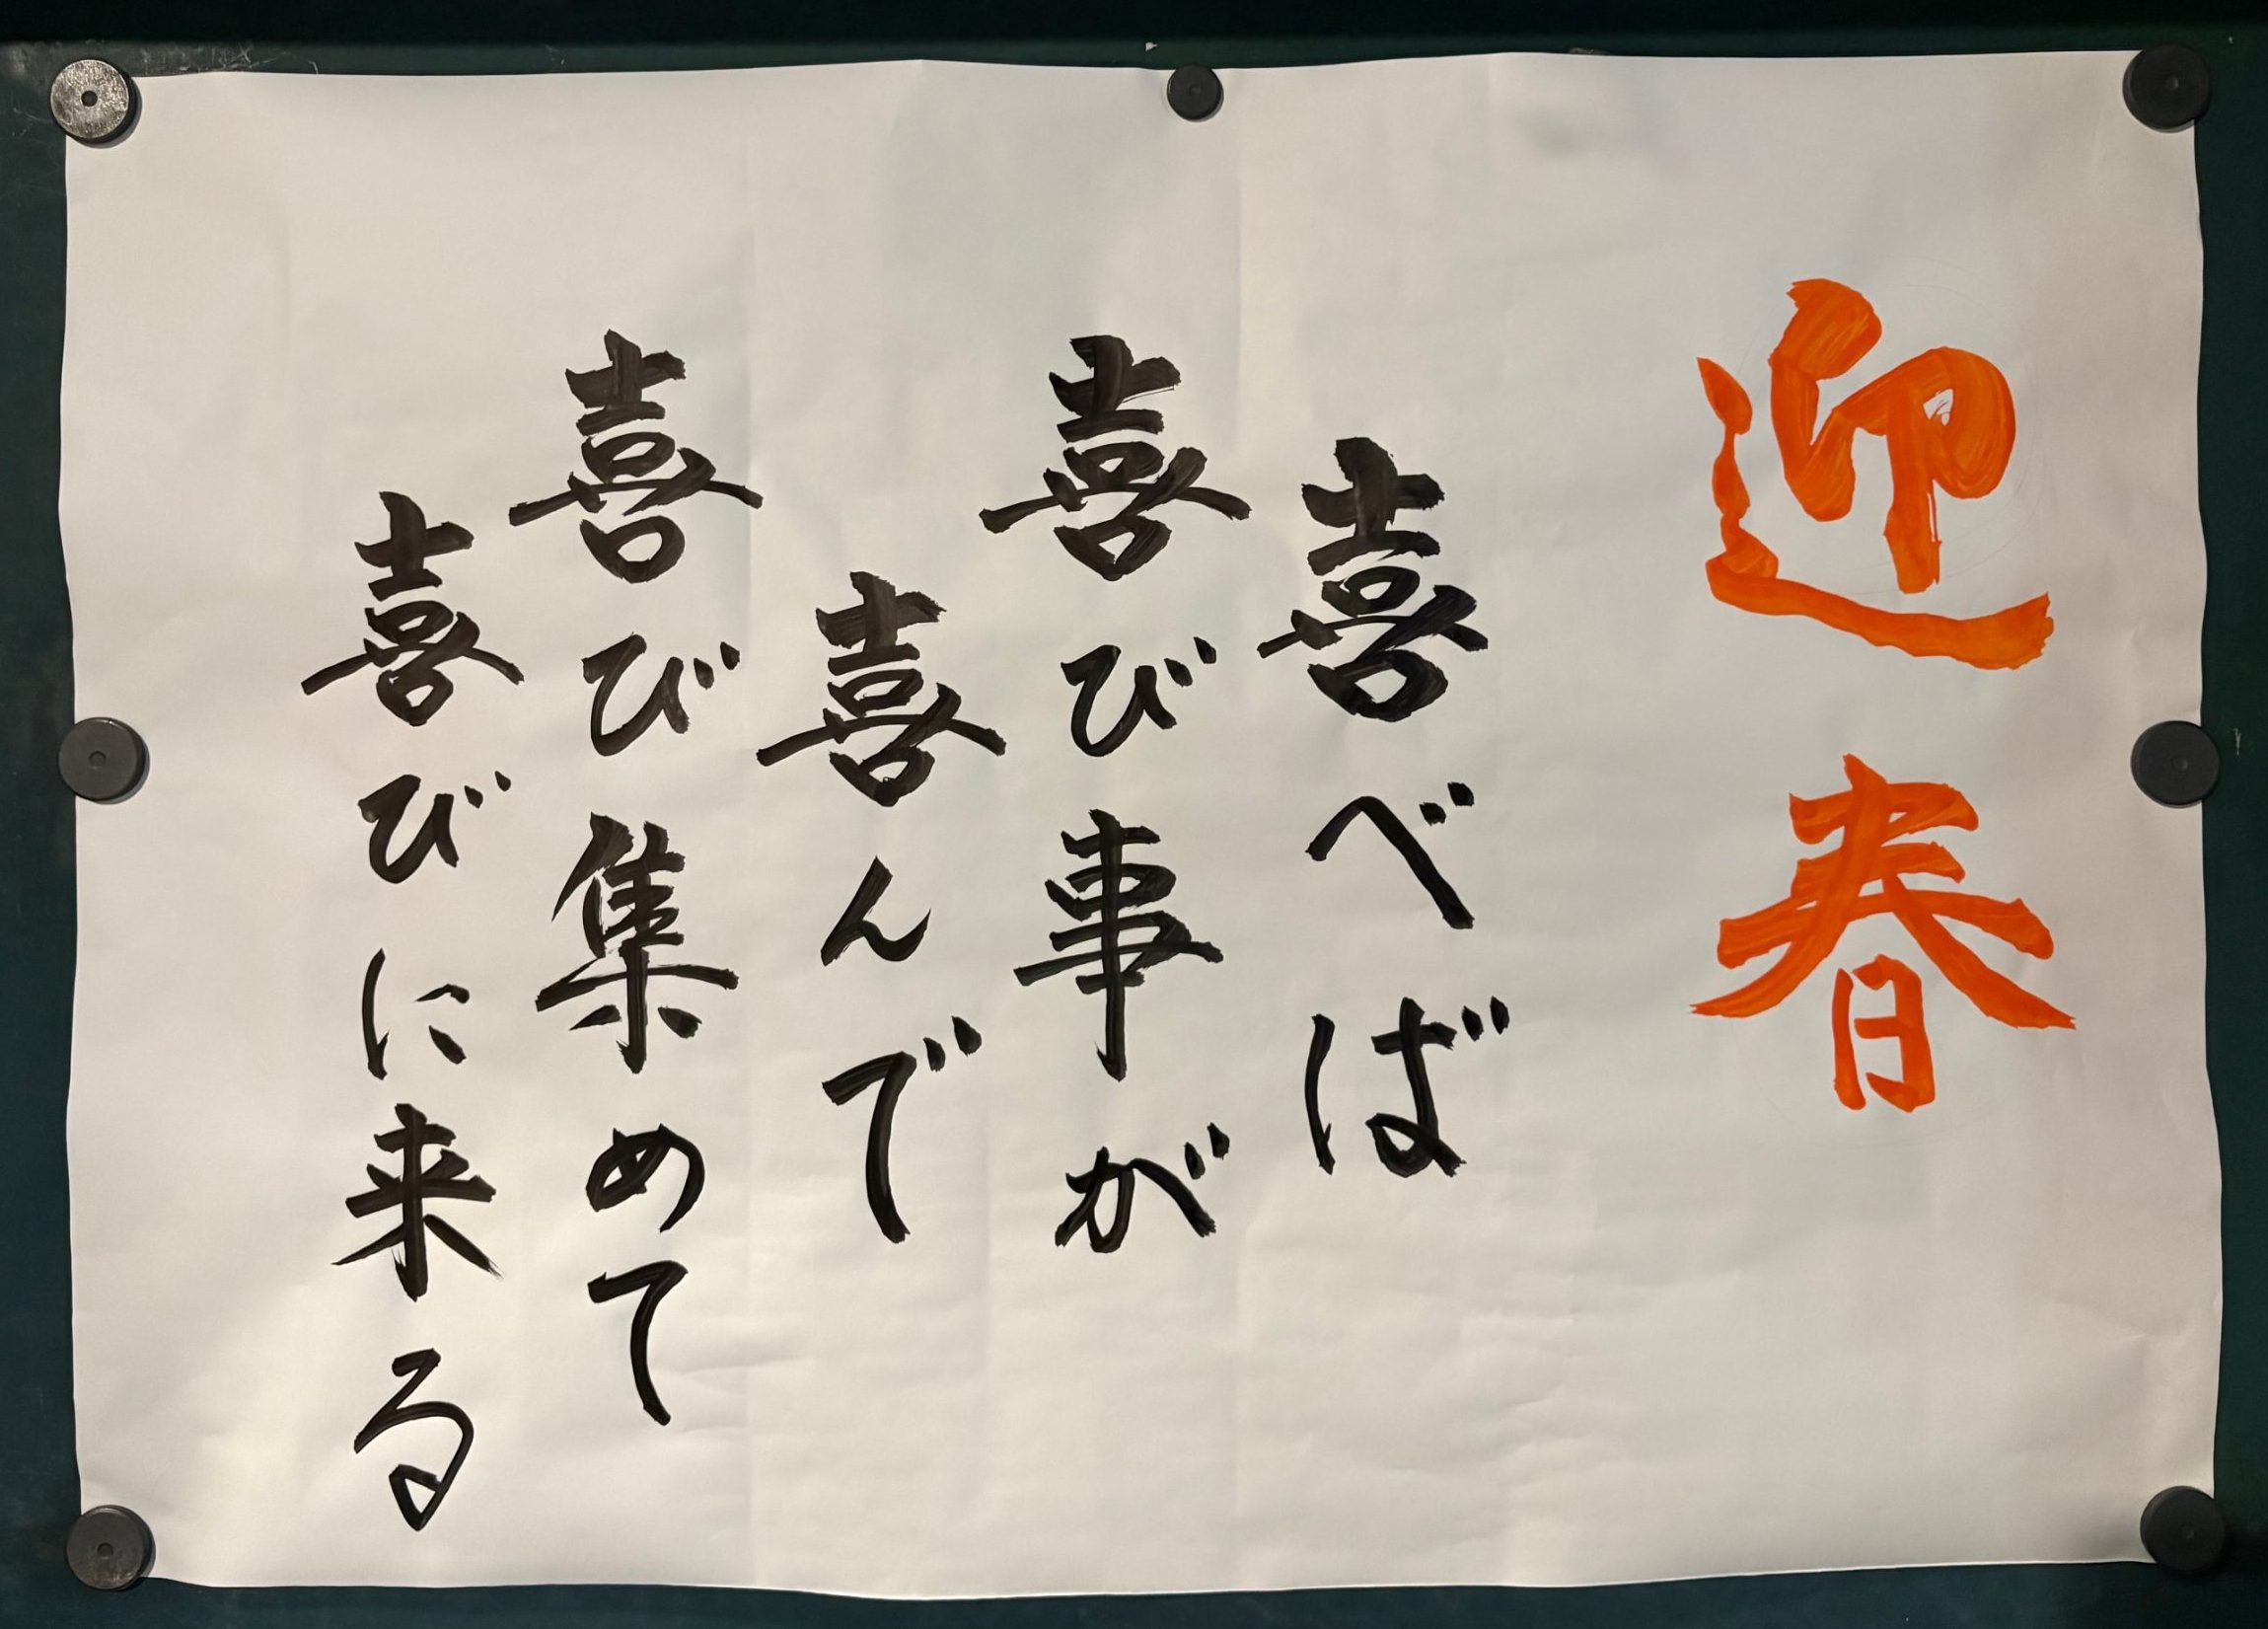 迎春
喜べば
喜び事が
喜んで
喜び集めて
喜びに来る